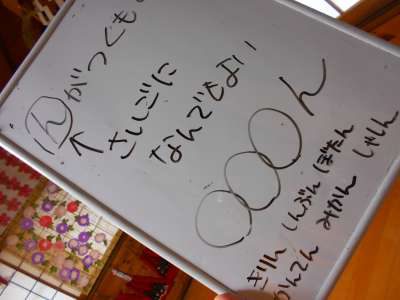 んがつくも
↑
さいごに
なんでもよい
○○○ん
きりん しんぶん ぼたん
かんてん みかん しゃりん